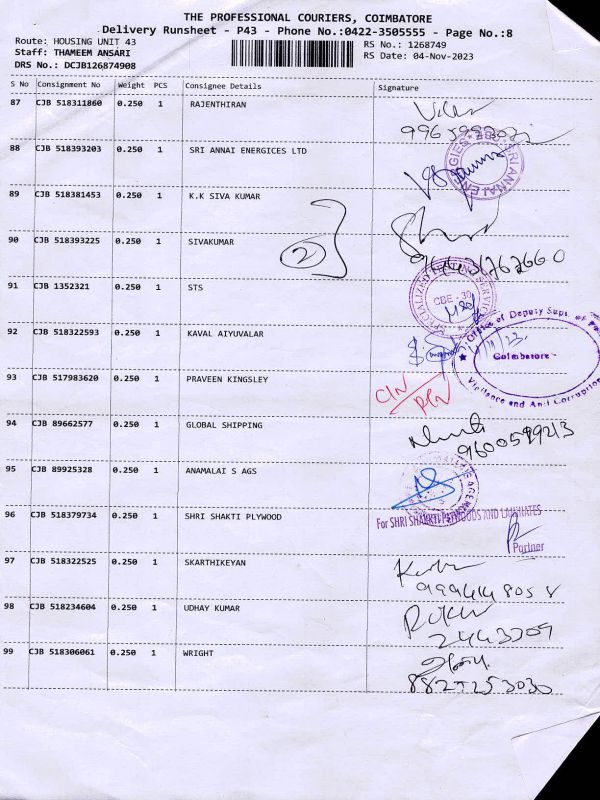 THE PROFESSIONAL COURIERS, COIMBATORE
Delivery Runsheet - P43 - Phone No.:0422-3505555 - Page No.:8
Route: HOUSING UNIT 43
Staff: THAMEEM ANSARI
DRS No.: DCJB126874908
RS No.: 1268749
RS Date: 04-Nov-2023
S No Consignment No Weight PCS Consignee Details Signature
87 CJB 518311860 0.250 1 RAJENTHIRAN
88 CJB 518393203 0.250 1 SRI ANNAI ENERGICES LTD
89 CJB 518381453 0.250 1 K.K SIVA KUMAR
2
90 CJB 518393225 0.250 1 SIVAKUMAR
91 CJB 1352321 0.250 1 STS
CBE - 30
92 CJB 518322593 0.250 1 KAVAL AIYUVALAR
Office of Deputy Supt.
Coimbatore
Vigilance and Anti Corruption
93 CJB 517983620 0.250 1 PRAVEEN KINGSLEY
94 CJB 89662577 0.250 1 GLOBAL SHIPPING
9600599213
95 CJB 89925328 0.250 1 ANAMALAI S AGS
96 CJB 518379734 0.250 1 SHRI SHAKTI PLYWOOD
For SHRI SHAKTI PLYWOODS AND LAMINATES
Partner
97 CJB 518322525 0.250 1 SKARTHIKEYAN
98 CJB 518234604 0.250 1 UDHAY KUMAR
2443709
99 CJB 518306061 0.250 1 WRIGHT